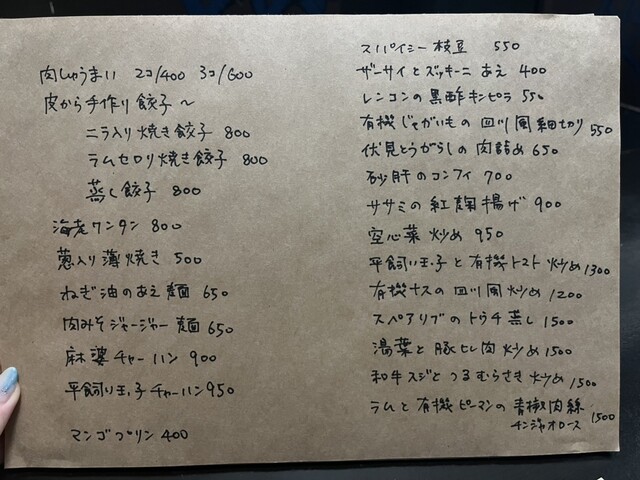 肉しゅうまい 2コ/400 3コ/600
皮から手作り餃子〜
ニラ入り焼き餃子 800
ラムセロリ焼き餃子 800
蒸し餃子 800
海老ワンタン 800
葱入り薄焼き 500
ねぎ油のあえ麺 650
肉みそジャージャー麺 650
麻婆チャーハン 900
平飼い玉子チャーハン 950
マンゴプリン 400
スパイシー枝豆 550
ザーサイとズッキーニあえ 400
レンコンの黒酢キンピラ 550
有機じゃがいもの四川風細切り 550
伏見とうがらしの肉詰め 650
砂肝のコンフィ 700
ササミの紅麹揚げ 900
空心菜炒め 950
平飼い玉子と有機トマト炒め 1300
有機ナスの四川風炒め 1200
スペアリブのトウチ蒸し 1500
湯葉と豚ヒレ肉炒め 1500
和牛スジとつるむらさき炒め 1500
ラムと有機ピーマンの青椒肉絲 1500
チンジャオロース